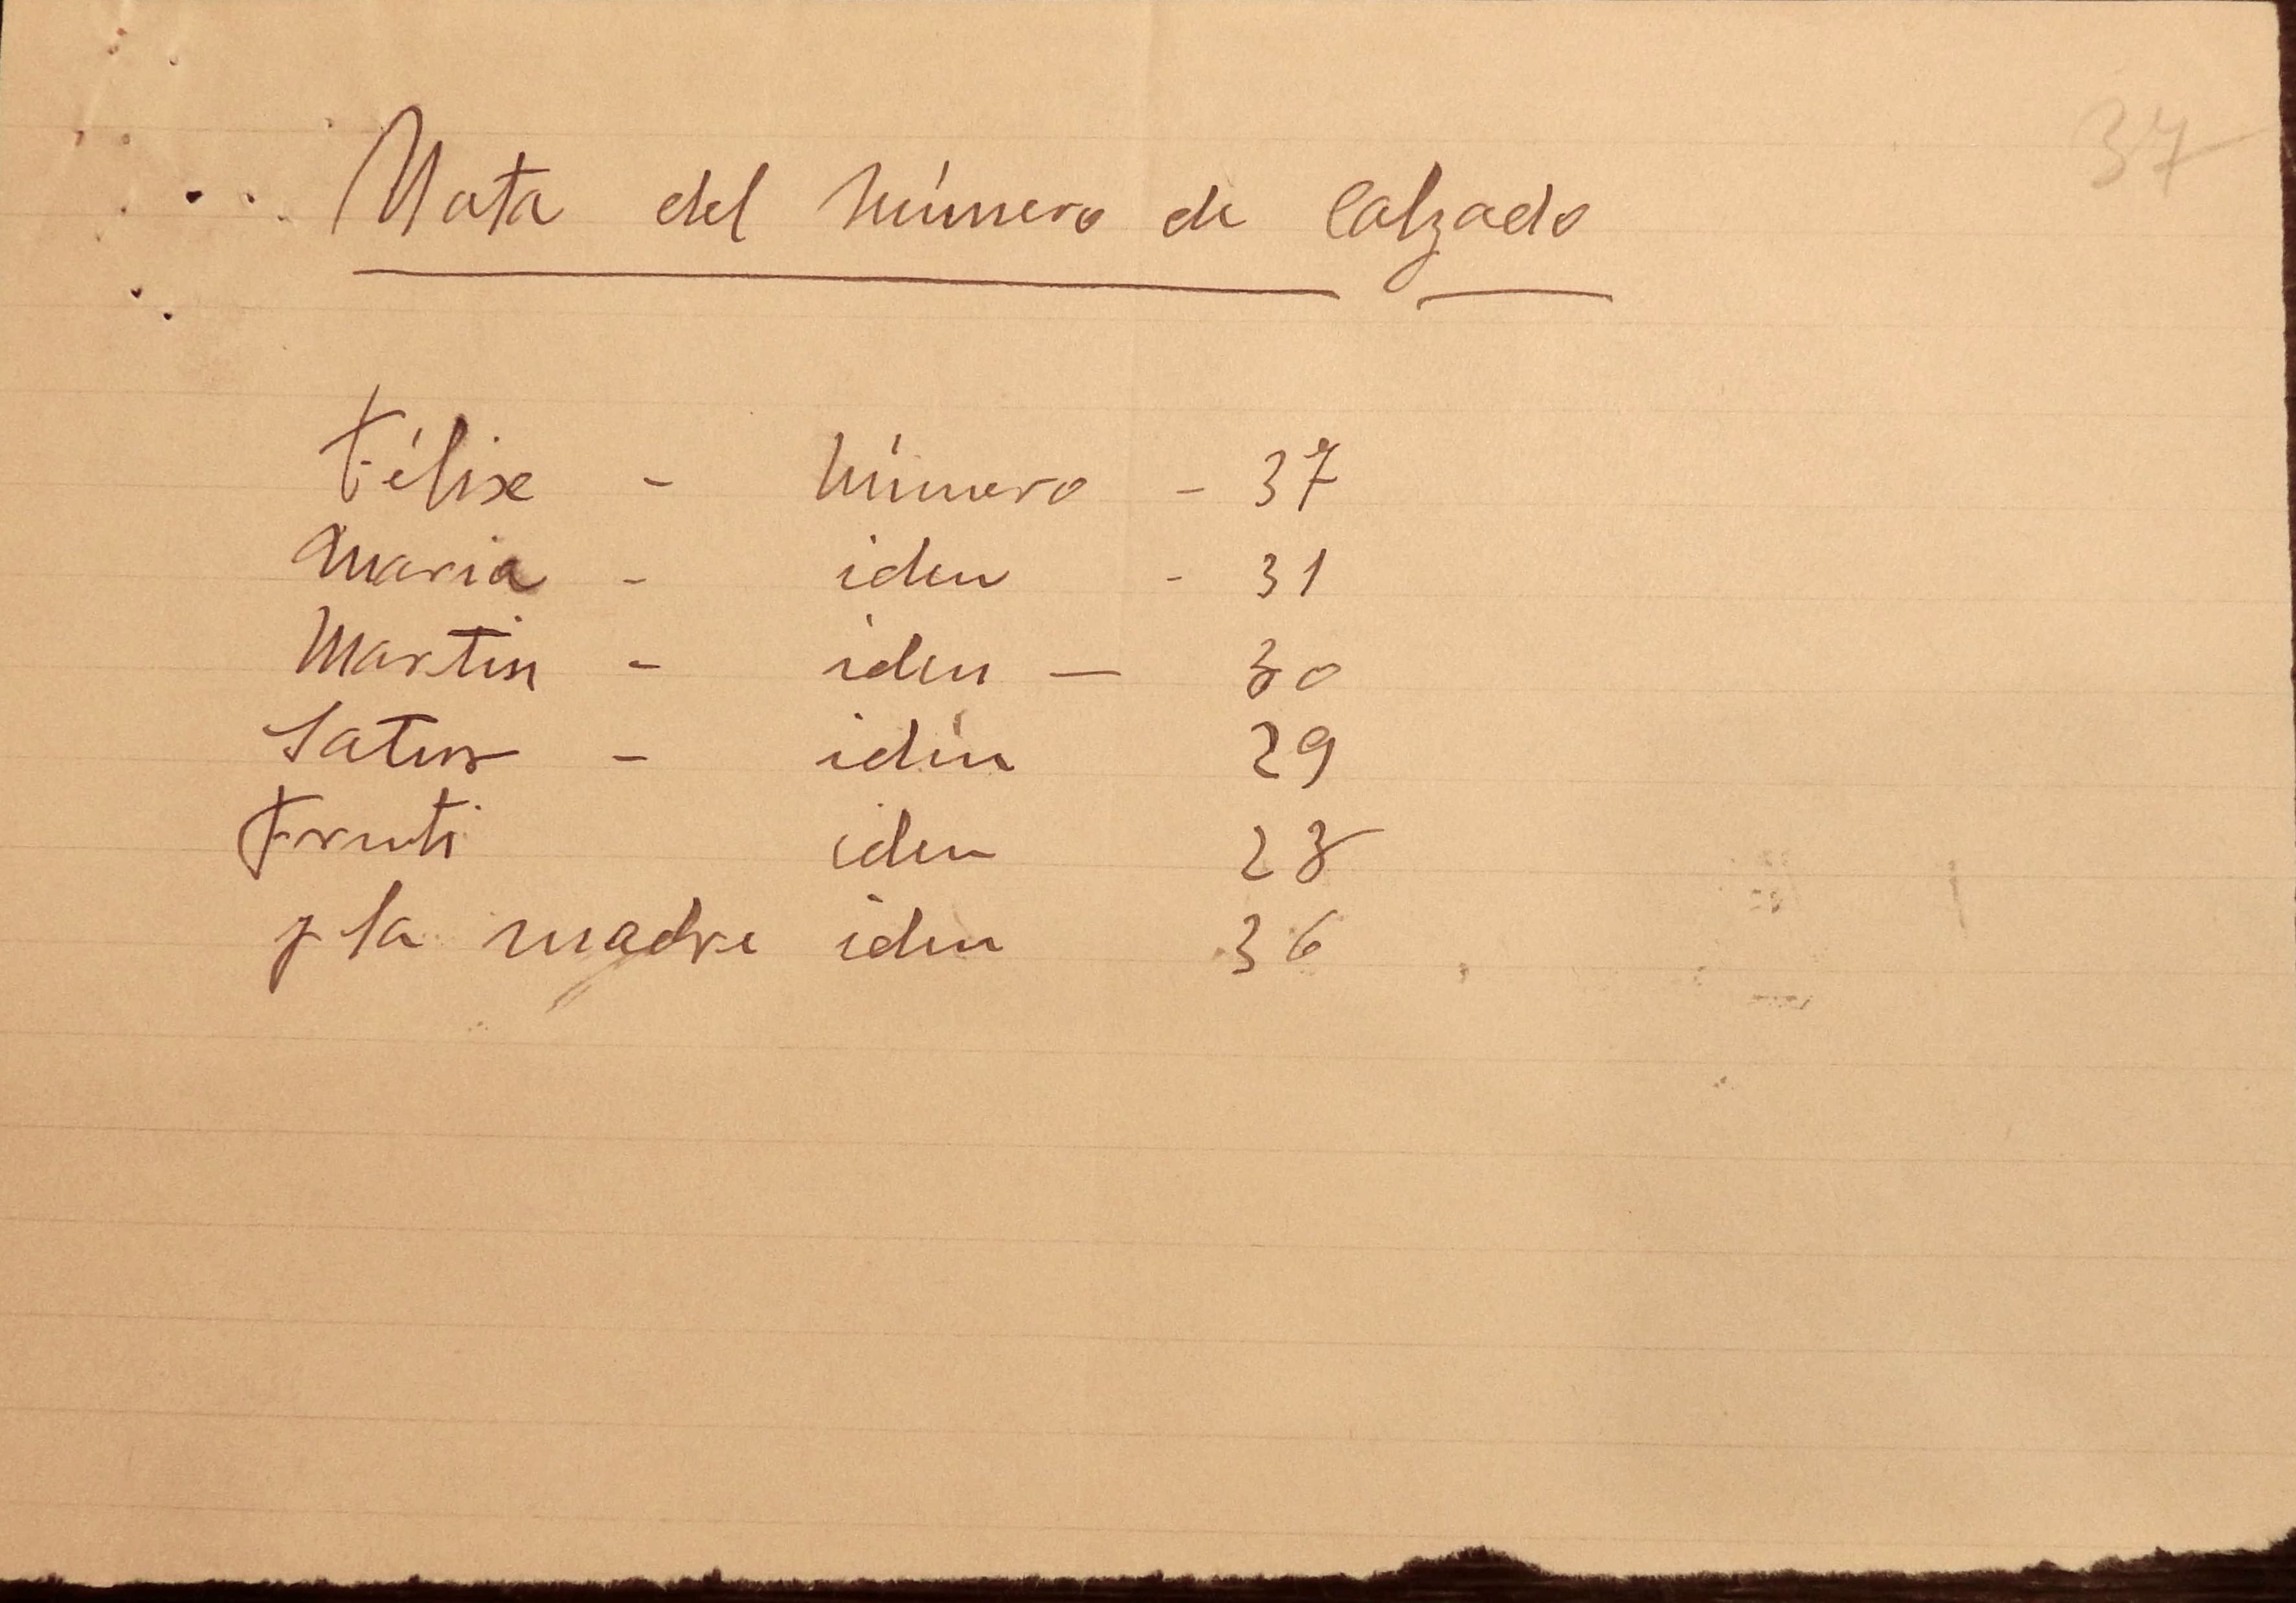 37
Nota del número de Calzado
Félix - número - 37
Maria - iden - 31
Martin - iden - 30
Satur - iden 29
Fruti iden 28
y la madre iden 36